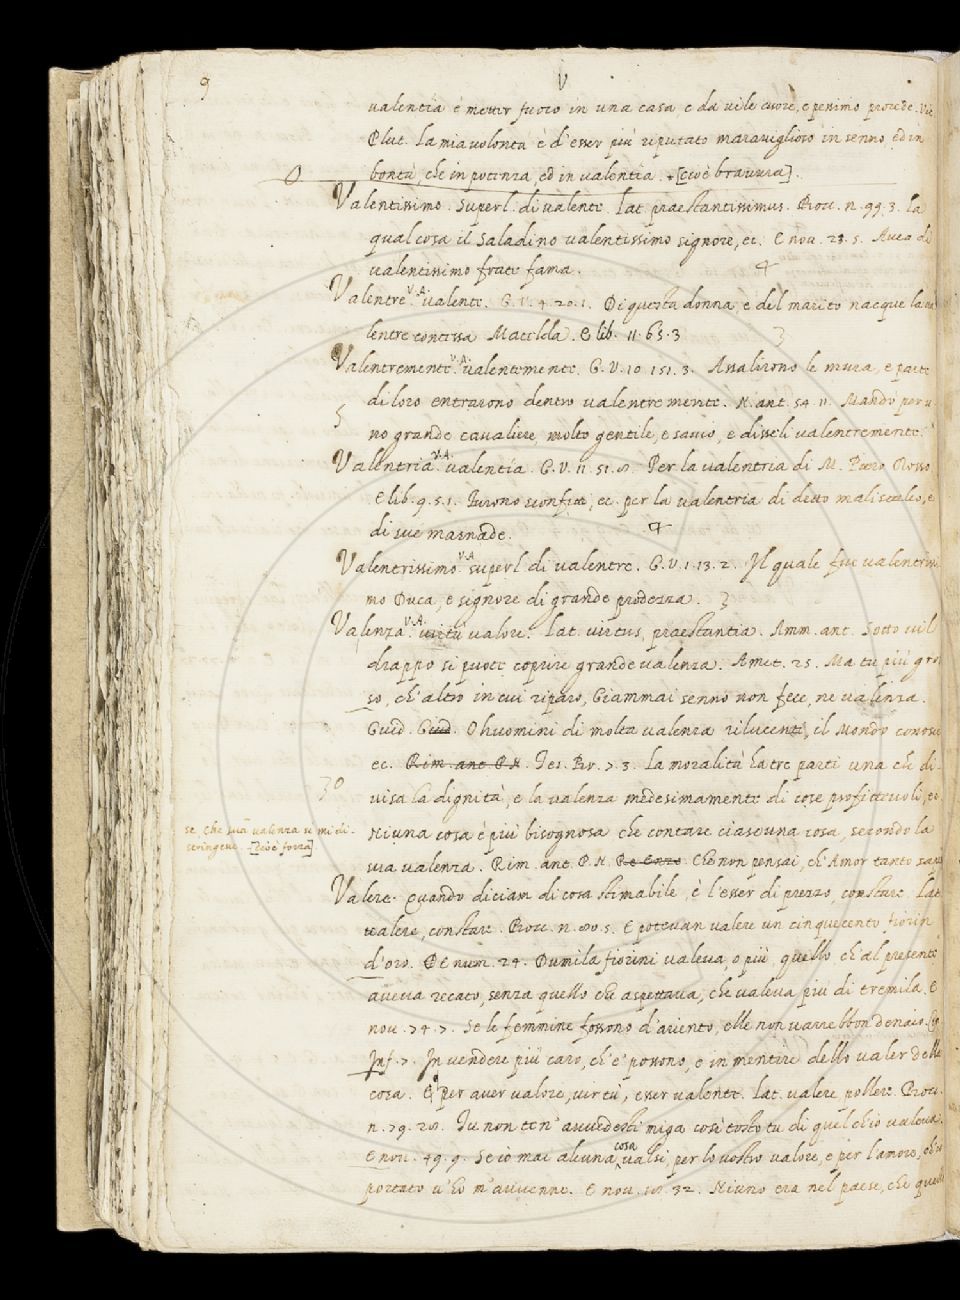 9
V
valentia è metter fuoco in una casa, e da vile cuore, e pessimo procede. Vit.
Plut. La mia volontà è d'esser più riputato maraviglioso in senno ed in
0
bontà, che in potenza, ed in valentia. +[cioè bravura].
Valentissimo. Superl. di valente. Lat. praestantissimus. Bocc. n. 99. 3. La
qual cosa il Saladino valentissimo signore, ec. E nov. 23. 5. Avea di
valentissimo frate fama. 4
Valentre. V.A. valente. G. V. 4. 20. 1. Di questa donna, e del marito nacque la va
lentre contessa Matelda. E lib. 11. 65. 3 3
Valentremente. V.A. valentemente. G. V. 10. 151. 3. Assalirono le mura, e parte
5
di loro entrarono dentro valentremente. N. ant. 54. 11. Mandò per u
no grande cavaliere, molto gentile, e savio, e disseli valentremente.
Valentria. V.A. valentia. G. V. 11. 51. 8. Per la valentria di M. Piero Rosso
E lib. 9. 5. 1. Furono sconfitti, ec. per la valentria di detto maliscalco, e
di sue masnade. 4
Valentrissimo. V.A. superl. di valentre. G. V. 1. 13. 2. Il quale fue valentrissi
mo Duca, e signore di grande prodezza. 3
Valenza. V.A. virtù valore. Lat. virtus, praestantia. Amm. ant. Sotto vil
drappo si puote coprire grande valenza. Amet. 25. Ma tu più gros
so, ch'altro in cui riparo, Giammai senno non fece, ne valenza.
Guid. Guid. Ohuomini di molta valenza rilucenti, il Mondo conosce
ec. Rim. ant. P. N. Tes. Br. 7. 3. La moralità ha tre parti una ch di
30
visa la dignità, e la valenza medesimamente di cose profittevoli, ec.
se, che sua valenza si mi di-
Niuna cosa è più bisognosa che contare ciascuna cosa, secondo la
stringesse. [cioè forza]
sua valenza. Rim. ant. P. N. Re Enzo. Che non pensai, ch'Amor tanto
Valere. Quando diciam di cosa stimabile, è l'esser di prezzo, constare. Lat.
valere, constare. Bocc. n. 80. 5. E potevan valere un cinquecento fiorin
d'oro. E num. 24. Dumila fiorini valeva, o più, quello ch'al presente
aveva recato, senza quello che aspettava, che valeva più di tremila. E
nov. 74. 7. Se le femmine fossono d'ariento, elle non varrebbon denaio.
Inf. 7. In vendere più caro, ch'e' possono, e in mentire dello valer delle
cosa. E per aver valore, virtù, esser valente. Lat. valere pollere. Bocc.
n. 79. 28. Tu non te n'avvedesti miga così tosto tu di quel ch'io valeva.
E nov. 49. 9. Se io mai alcuna cosa valsi, per lo vostro valore, e per l'amore, ch'io
portato v'ho m'avvenne. E nov. 32. Niuno era nel paese, che